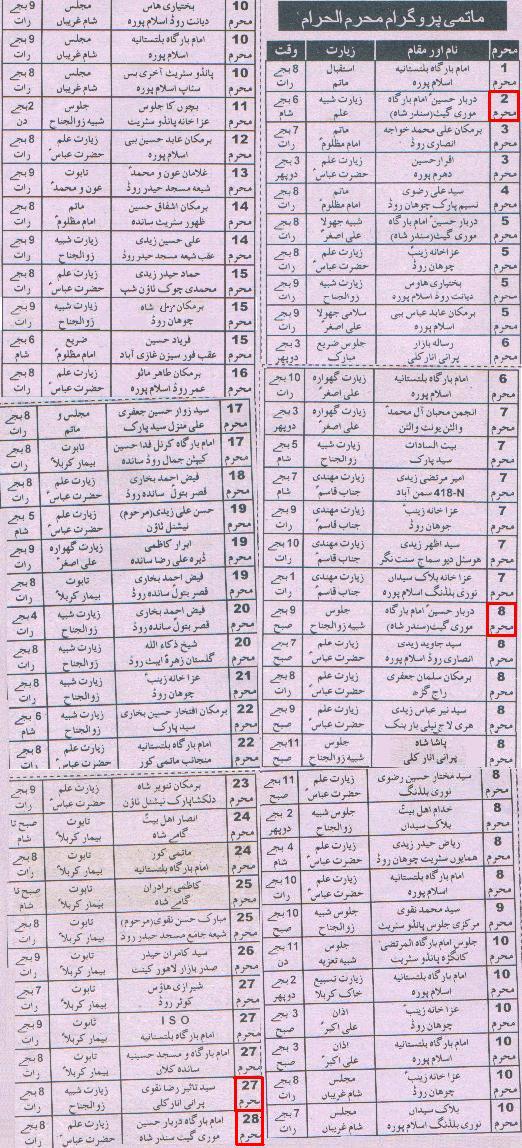 ماتمی پروگرام محرم الحرام
محرم نام اور مقام زیارت وقت
1 محرم امام بارگاہ بلتستانیہ اسلام پورہ استقبال ماتم 8 بجے رات
2 محرم دربار حسین امام بارگاہ موری گیٹ (سندر شاہ) زیارت شبیہ علم 6 بجے شام
3 محرم برمکان علی محمد خواجہ انصاری روڈ ماتم امام مظلوم 7 بجے رات
3 محرم اقرار حسین دھرم پورہ زیارت علم حضرت عباس 3 بجے دوپہر
4 محرم سید علی رضوی نسیم پارک چوہان روڈ ماتم امام مظلوم 8 بجے رات
5 محرم دربار حسین امام بارگاہ موری گیٹ (سندر شاہ) شبیہ جھولا علی اصغر 8 بجے رات
5 محرم عزا خانہ زینب چوہان روڈ زیارت علم حضرت عباس 8 بجے رات
5 محرم بختیاری ھاوس دیانت روڈ اسلام پورہ زیارت شبیہ زوالجناح 9 بجے رات
5 محرم برمکان عابد عباس ببی اسلام پورہ سلامی جھولا علی اصغر 9 بجے رات
6 محرم رسالہ بازار پرانی انار کلی جلوس ضریح مبارک 3 بجے دوپہر
6 محرم امام بارگاہ بلتستانیہ اسلام پورہ زیارت گھوارہ علی اصغر 10 بجے رات
7 محرم انجمن محبان آل محمد والٹن یونٹ والٹن زیارت گھوارہ علی اصغر 3 بجے دوپہر
7 محرم بیت السادات سید پارک زیارت شبیہ زوالجناح 5 بجے شام
7 محرم امیر مرتضی زیدی 418-N سمن آباد زیارت مھندی جناب قاسم 7 بجے شام
7 محرم عزا خانہ زینب چوہان روڈ زیارت مھندی جناب قاسم 9 بجے رات
7 محرم سید اظہر زیدی ھوسٹل دیو سماج سنت نگر زیارت مھندی جناب قاسم 10 بجے رات
7 محرم عزا خانہ بلاک سیداں نوری بلڈنگ اسلام پورہ زیارت مھندی جناب قاسم 1 بجے رات
8 محرم دربار حسین امام بارگاہ موری گیٹ (سندر شاہ) جلوس شبیہ زوالجناح 9 بجے صبح
8 محرم سید جاوید زیدی انصاری روڈ اسلام پورہ زیارت علم حضرت عباس 7 بجے صبح
8 محرم برمکان سلمان جعفری راج گڑھ زیارت علم حضرت عباس 8 بجے
8 محرم سید نیر عباس زیدی ھری لاج نیلی بار بنک زیارت علم حضرت عباس 9 بجے صبح
8 محرم پاشا شاہ پرانی انار کلی جلوس شبیہ زوالجناح 11 بجے صبح
8 محرم سید مختار حسین رضوی نوری بلڈنگ زیارت علم حضرت عباس 11 بجے صبح
8 محرم خدام اھل بیت بلاک سیداں جلوس شبیہ زوالجناح 2 بجے دوپہر
8 محرم ریاض حیدر زیدی ھمایوں سٹریٹ چوہان روڈ زیارت علم حضرت عباس 4 بجے شام
8 محرم امام بارگاہ بلتستانیہ اسلام پورہ زیارت علم حضرت عباس 10 بجے رات
9 محرم سید محمد نقوی مرکزی جلوس پانڈو سٹریٹ جلوس شبیہ زوالجناح 10 بجے صبح
10 محرم جلوس امام بارگاہ المرتضی کانگڑہ پانڈو سٹریٹ جلوس شبیہ تعزیہ 11 بجے دن
10 محرم امام بارگاہ بلتستانیہ اسلام پورہ زیارت تسبیح خاک کربلا 2 بجے دوپہر
10 محرم عزا خانہ زینب چوہان روڈ اذان علی اکبر 3 بجے صبح
10 محرم امام بارگاہ بلتستانیہ اسلام پورہ اذان علی اکبر 3 بجے صبح
10 محرم عزا خانہ زینب چوہان روڈ مجلس شام غریباں 8 بجے رات
10 محرم بلاک سیداں نوری بلڈنگ اسلام پورہ مجلس شام غریباں 7 بجے رات
10 محرم بختیاری ھاس دیانت روڈ اسلام پورہ مجلس شام غریباں 9 بجے رات
10 محرم امام بارگاہ بلتستانیہ اسلام پورہ مجلس شام غریباں 9 بجے رات
10 محرم پانڈو سٹریٹ آخری بس سٹاپ اسلام پورہ مجلس شام غریباں 8 بجے رات
11 محرم بچوں کا جلوس عزا خانہ پانڈو سٹریٹ جلوس شبیہ زوالجناح 2 بجے دن
12 محرم برمکان عابد حسین ببی اسلام پورہ زیارت علم حضرت عباس 8 بجے رات
13 محرم غلامان عون و محمد شیعہ مسجد حیدر روڈ تابوت عون و محمد 9 بجے رات
14 محرم برمکان اشفاق حسین ظہور سٹریٹ ساندہ ماتم امام مظلوم 8 بجے رات
14 محرم علی حسین زیدی عقب شیعہ مسجد حیدر روڈ زیارت شبیہ زوالجناح 9 بجے رات
15 محرم حماد حیدر زیدی محمدی چوک ٹاؤن شپ زیارت علم حضرت عباس 8 بجے رات
15 محرم برمکان شاہ چوہان روڈ زیارت شبیہ زوالجناح 9 بجے رات
15 محرم فریاد حسین عقب فور سیزن غازی آباد ضریح امام مظلوم 6 بجے شام
16 محرم برمکان طاھر مانو عمر روڈ اسلام پورہ زیارت علم حضرت عباس 8 بجے رات
17 محرم سید زوار حسین جعفری علی منزل سید پارک مجلس و ماتم 8 بجے رات
17 محرم امام بارگاہ کرنل فدا حسین کیپٹن جمال روڈ ساندہ تابوت بیمار کربلا 8 بجے رات
18 محرم فیض احمد بخاری قصر بتول ساندہ روڈ زیارت علم حضرت عباس 8 بجے رات
19 محرم حسن علی زیدی (مرحوم) نیشنل ٹاؤن زیارت علم حضرت عباس 5 بجے شام
19 محرم ابرار کاظمی ڈیرہ علی رضا ساندہ زیارت گھوارہ علی اصغر 9 بجے رات
19 محرم فیض احمد بخاری قصر بتول ساندہ روڈ تابوت بیمار کربلا 8 بجے رات
20 محرم فیض احمد بخاری قصر بتول ساندہ روڈ زیارت شبیہ زوالجناح 4 بجے رات
20 محرم شیخ ذکاء اللہ گلستان زھرا ایبٹ روڈ زیارت شبیہ زوالجناح 8 بجے رات
21 محرم عزا خانہ زینب چوہان روڈ زیارت علم حضرت عباس 8 بجے رات
22 محرم برمکان افتخار حسین بخاری سید پارک زیارت شبیہ زوالجناح 6 بجے شام
22 محرم امام بارگاہ بلتستانیہ منجانب ماتمی کور زیارت علم حضرت عباس 8 بجے رات
23 محرم برمکان تنویر شاہ دلکشا پارک نیشنل ٹاؤن زیارت علم حضرت عباس 9 بجے رات
24 محرم انصار اھل بیت گامے شاہ تابوت بیمار کربلا صبح تا شام
24 محرم ماتمی کور امام بارگاہ بلتستانیہ تابوت بیمار کربلا 8 بجے رات
25 محرم کاظمی برادران گامے شاہ تابوت بیمار کربلا صبح تا شام
25 محرم مبارک حسن نقوی (مرحوم) شیعہ جامع مسجد حیدر روڈ تابوت بیمار کربلا 8 بجے رات
26 محرم سید کامران حیدر صدر بازار لاھور کینٹ زیارت علم حضرت عباس 9 بجے رات
27 محرم شیرازی ھاؤس کوثر روڈ تابوت بیمار کربلا 7 بجے رات
27 محرم ISO امام بارگاہ بلتستانیہ تابوت بیمار کربلا 9 بجے رات
27 محرم امام بارگاہ و مسجد حسینیہ ساندہ کلاں تابوت بیمار کربلا 8 بجے رات
27 محرم سید تاثیر رضا نقوی پرانی انار کلی زیارت شبیہ زوالجناح 8 بجے رات
28 محرم امام بارگاہ دربار حسین موری گیٹ سندر شاہ زیارت علم حضرت عباس 8 بجے رات